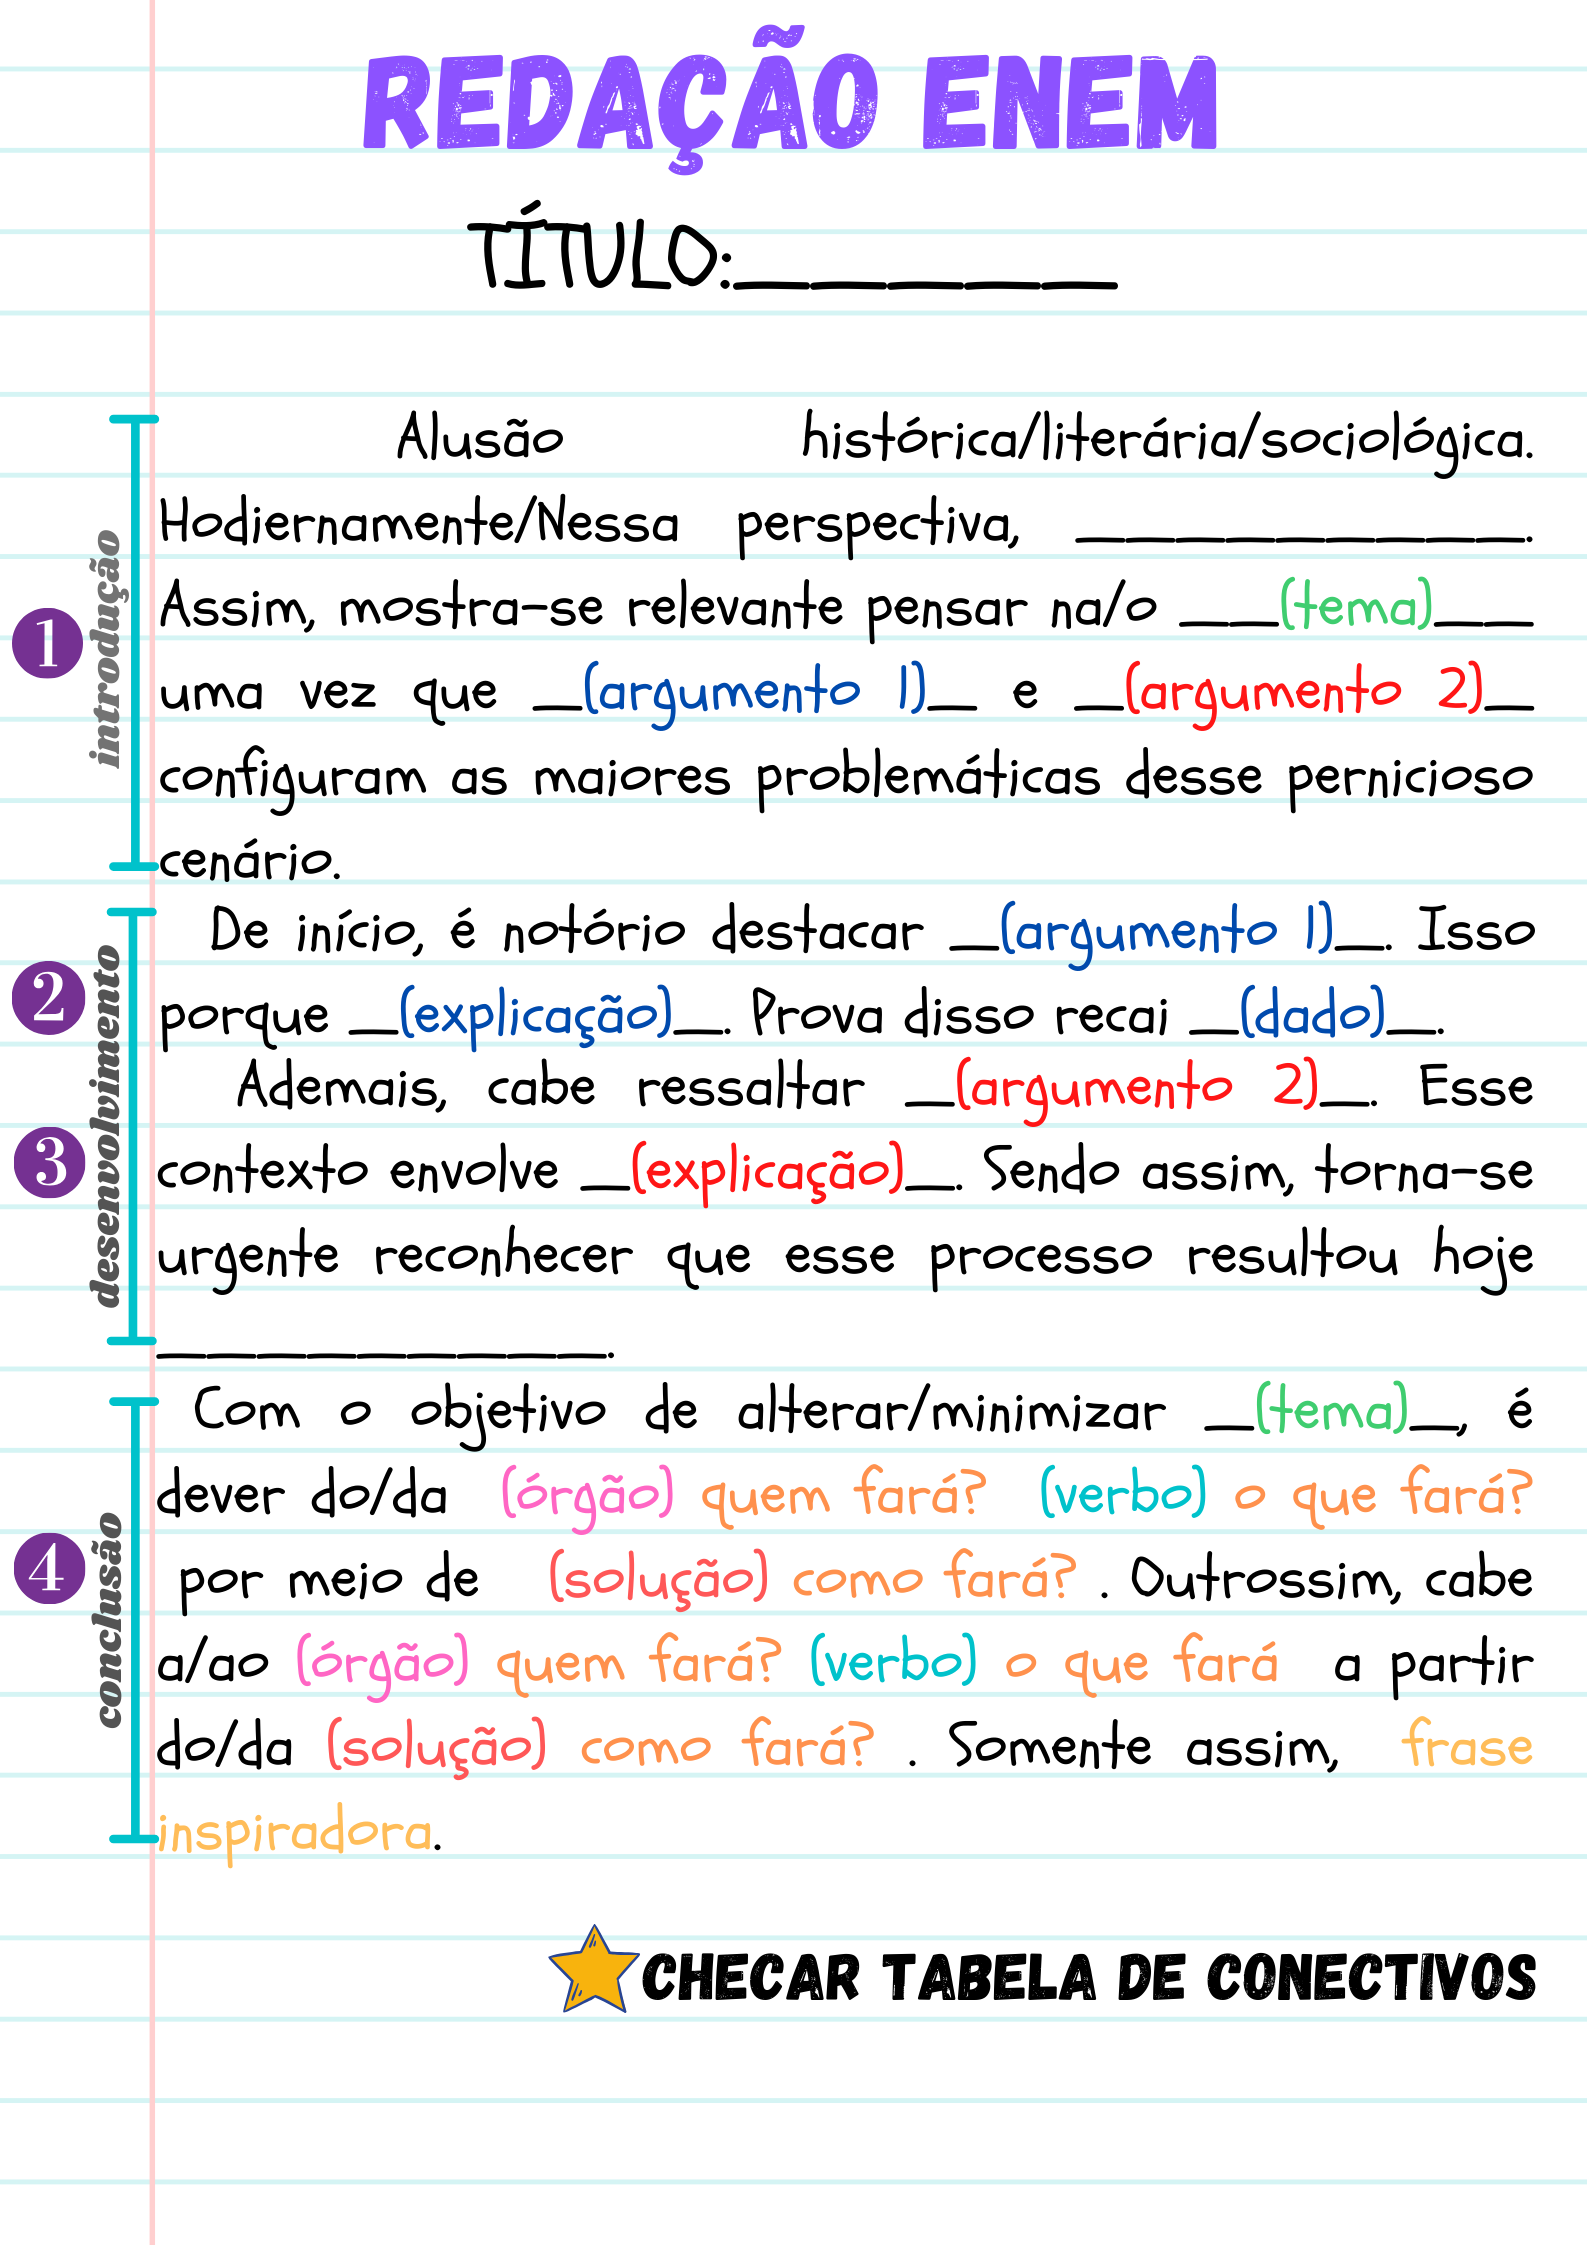 REDAÇÃO ENEM
TÍTULO:_____
Alusão histórica/literária/sociológica.
Hodiernamente/Nessa perspectiva, _________.
Assim, mostra-se relevante pensar na/o __(tema)__
uma vez que _(argumento 1)_ e _(argumento 2)_
configuram as maiores problemáticas desse pernicioso
cenário.
1
introdução
De início, é notório destacar _(argumento 1)_. Isso
porque _(explicação)_. Prova disso recai _(dado)_.
2
desenvolvimento
Ademais, cabe ressaltar _(argumento 2)_. Esse
contexto envolve _(explicação)_. Sendo assim, torna-se
urgente reconhecer que esse processo resultou hoje
_________.
3
Com o objetivo de alterar/minimizar _(tema)_, é
dever do/da (órgão) quem fará? (verbo) o que fará?
por meio de (solução) como fará? . Outrossim, cabe
a/ao (órgão) quem fará? (verbo) o que fará a partir
do/da (solução) como fará? . Somente assim, frase
inspiradora.
4
conclusão
CHECAR TABELA DE CONECTIVOS